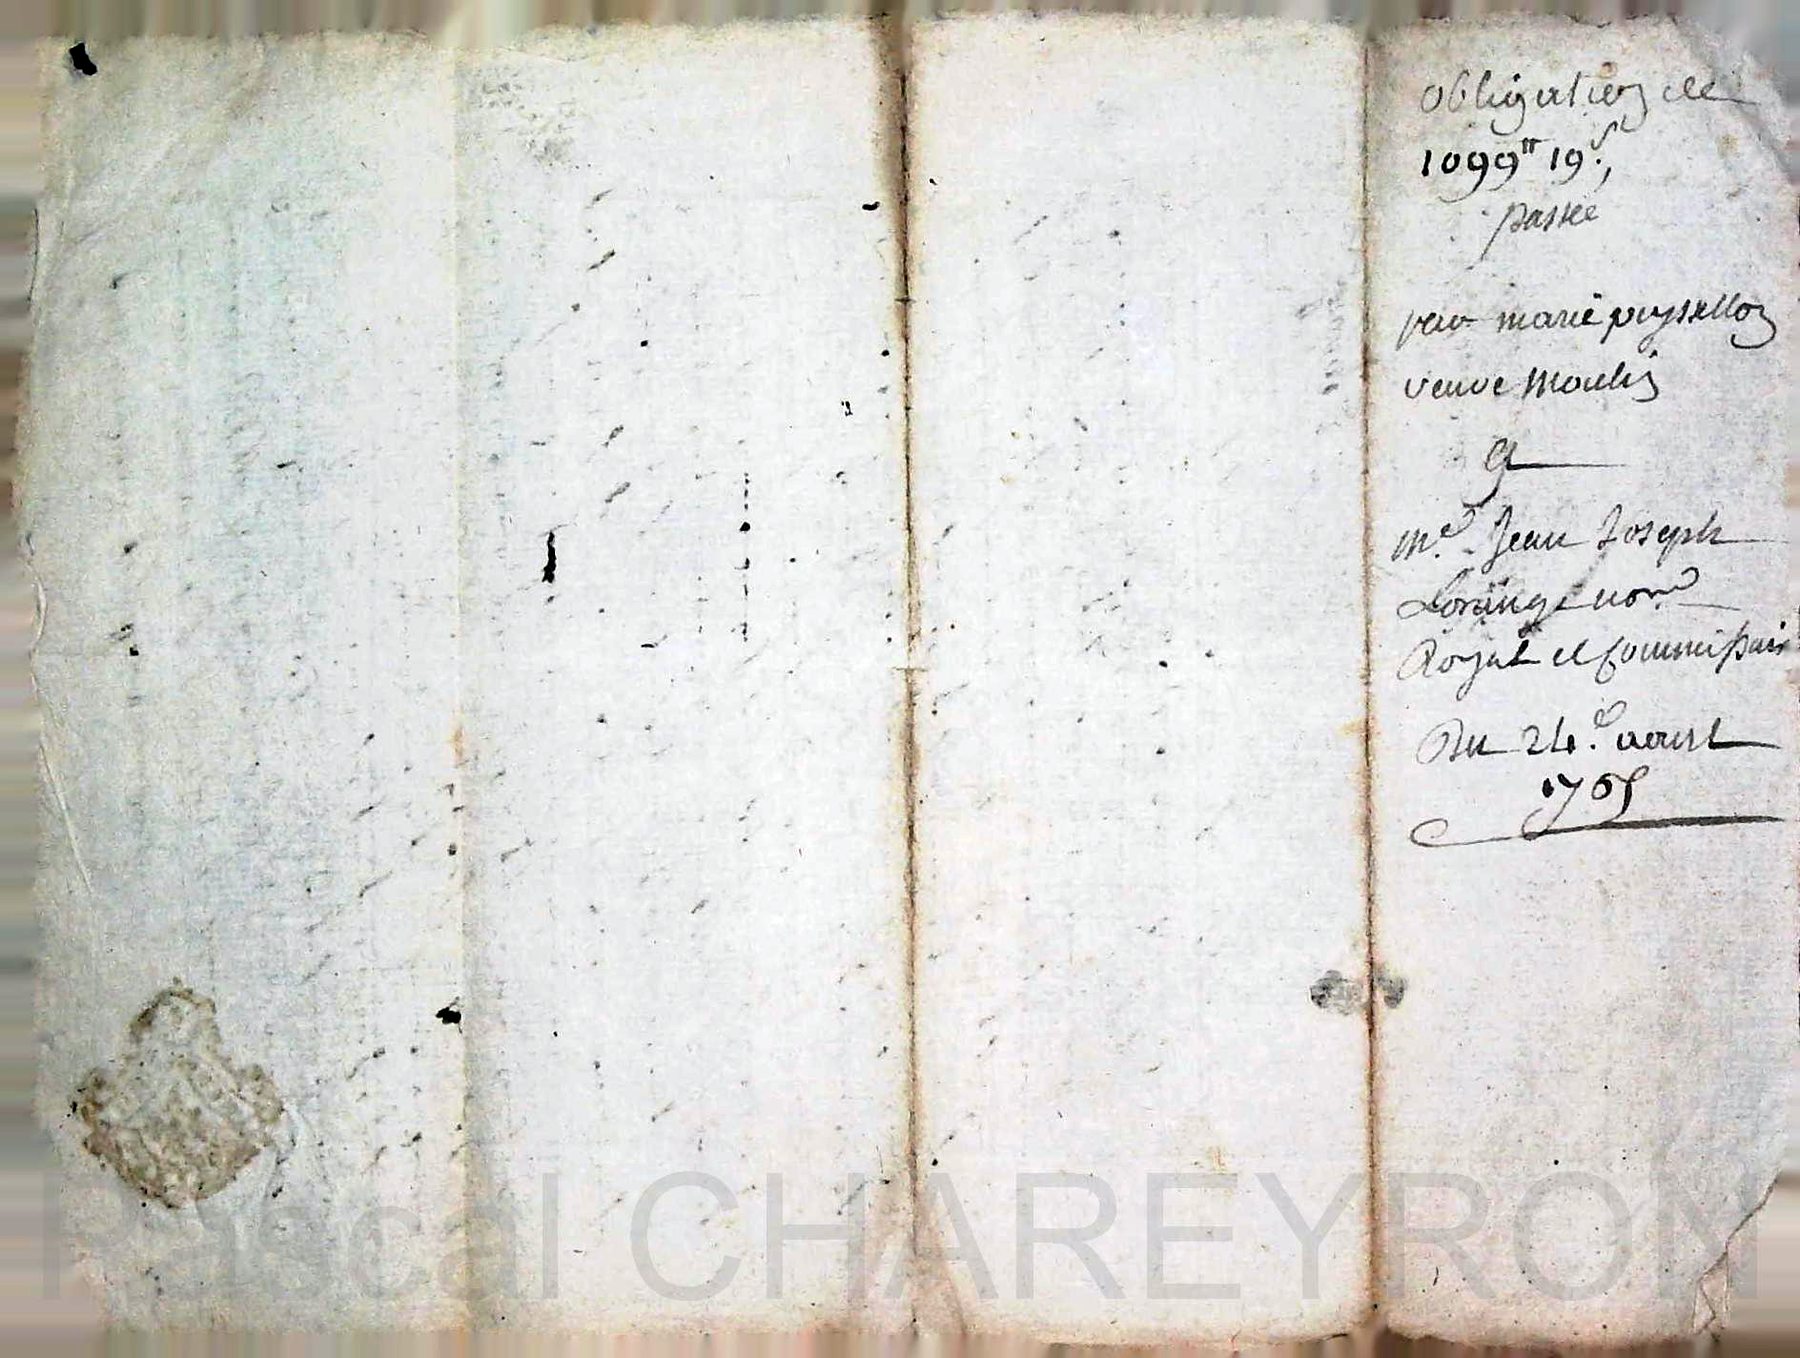 obligation de
1099tt 19s,
passée
par marie puyssellon
veuve Moulin
a
Me. Jean Joseph
Lorange nore
Royal et commissair
Du 24e. aoust
1765
Pascal CHAREYRON